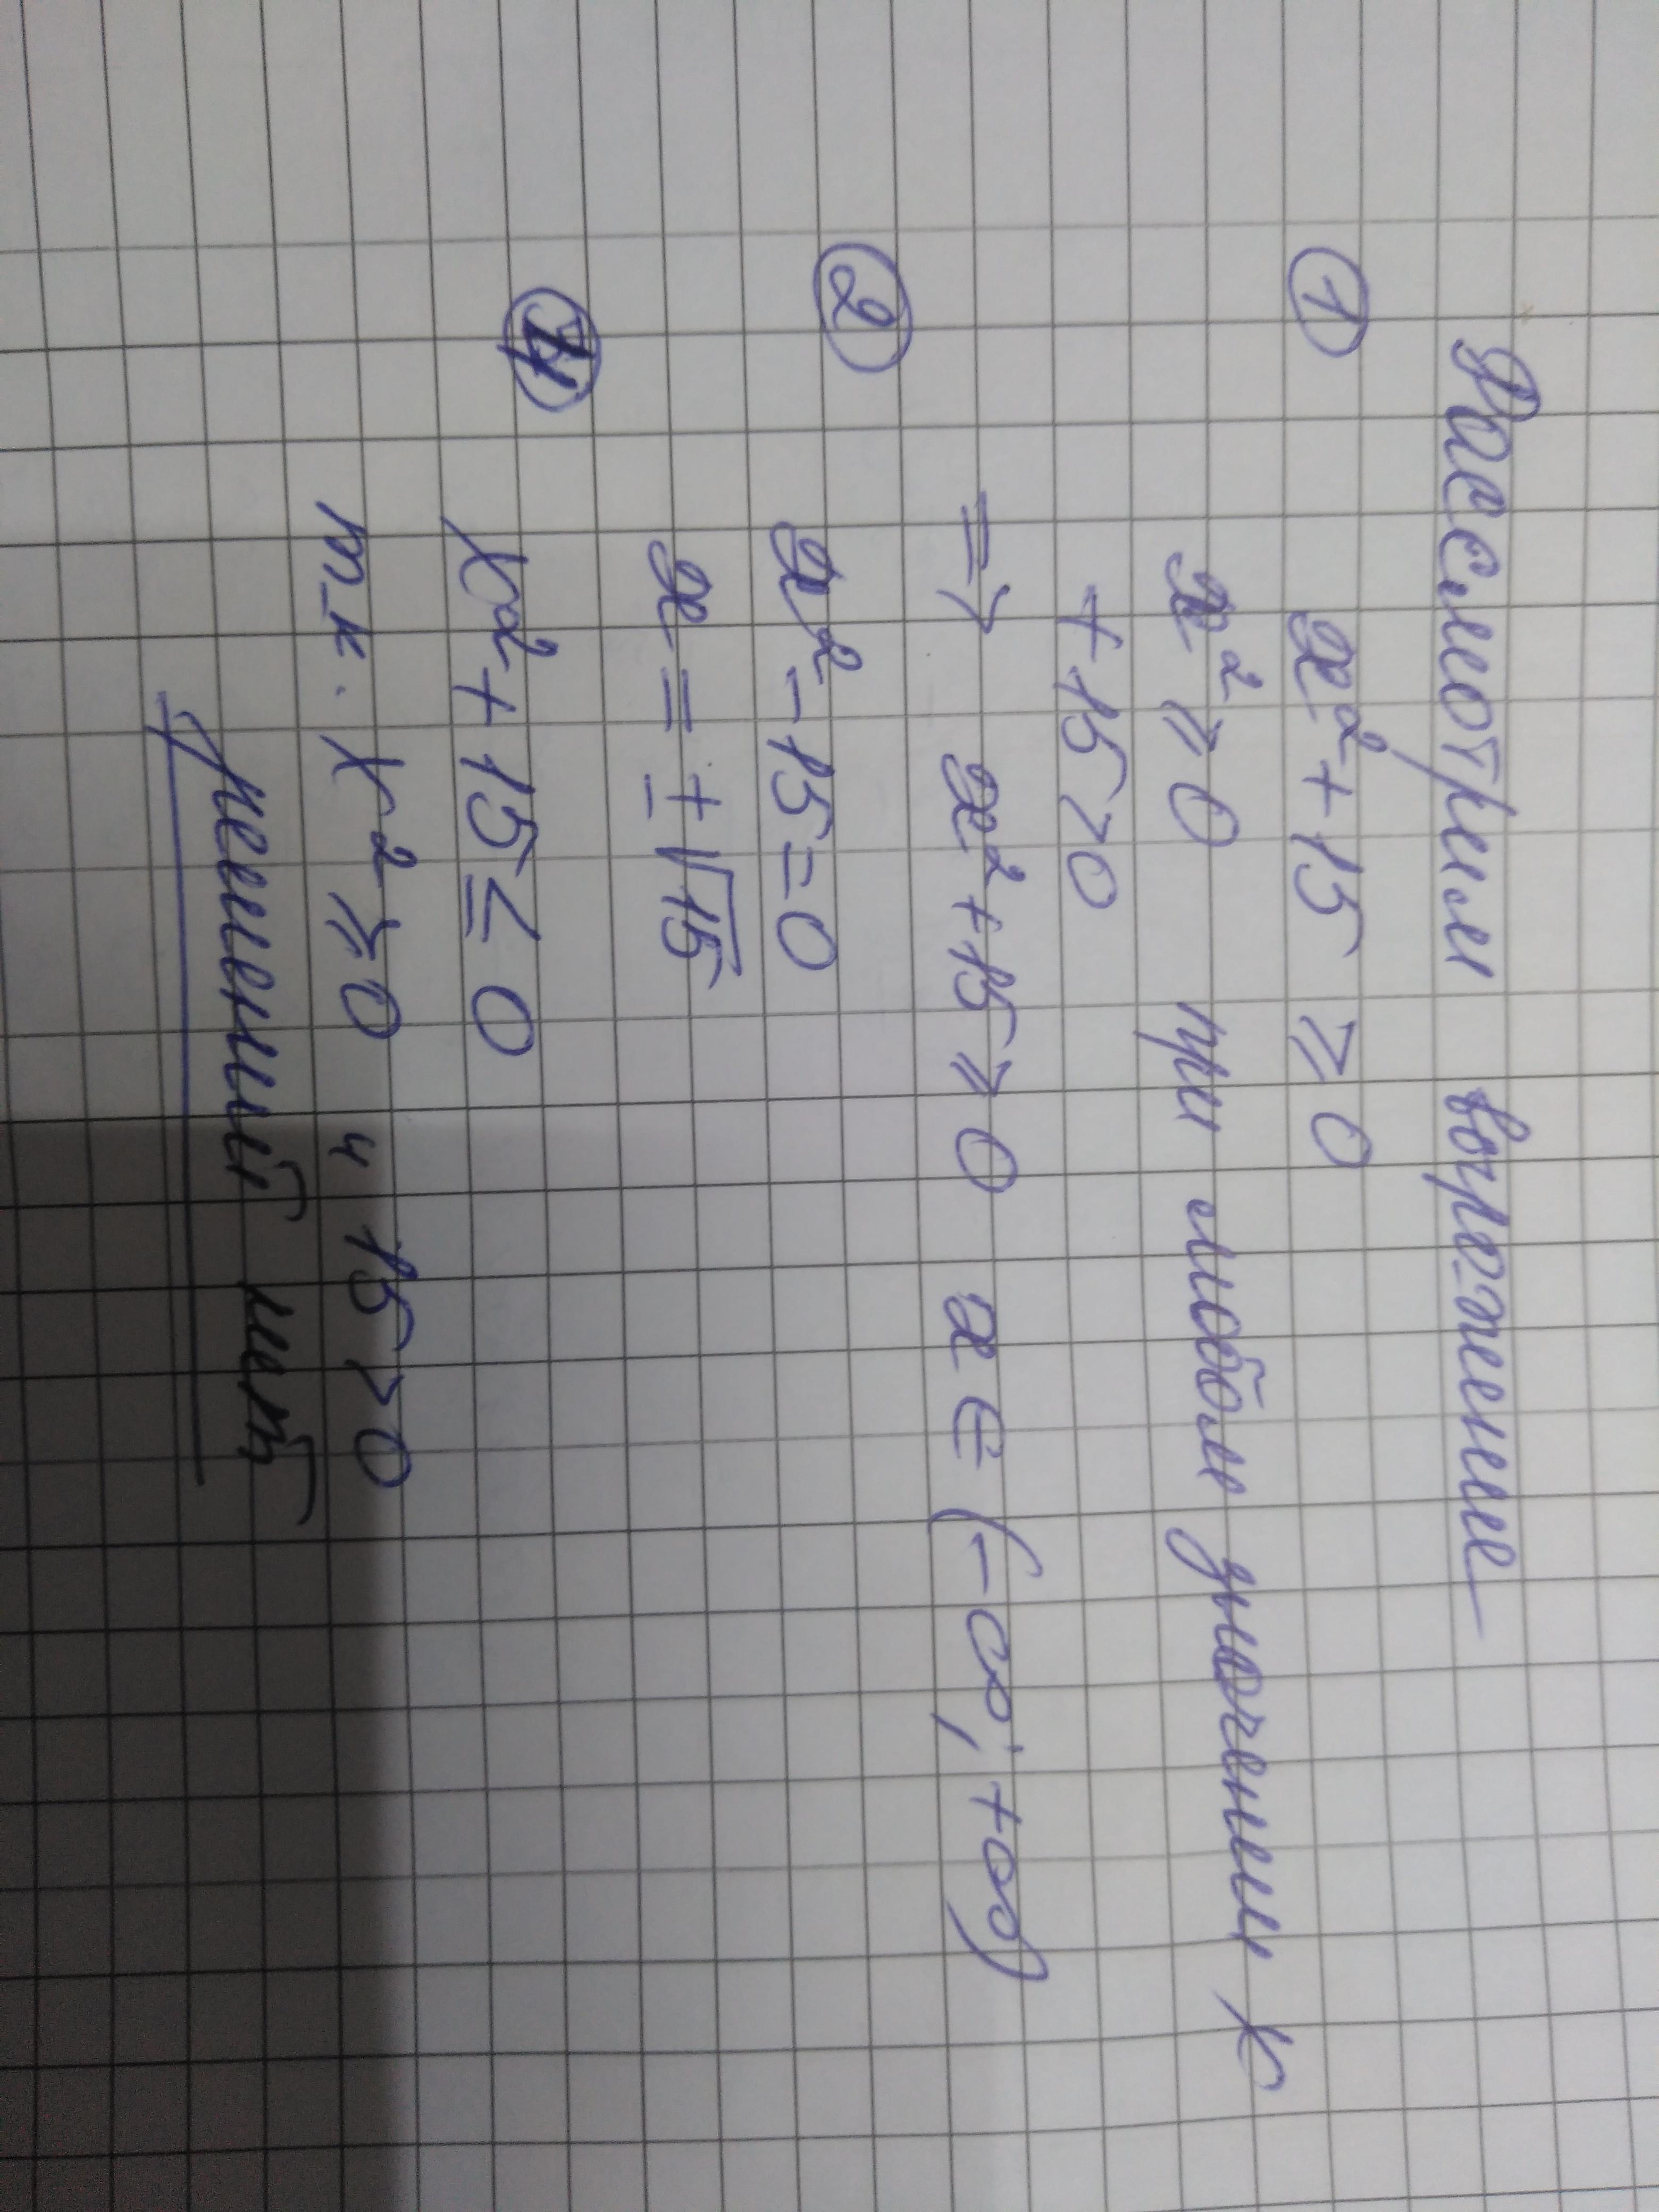 Рассмотрим выражение
① x² + 15 ⩾ 0
x² ⩾ 0 при любом значении x
+ 15 > 0
=> x² + 15 ⩾ 0 x ∈ (-∞; +∞)
② x² - 15 = 0
x = ± √15
④ x² + 15 ≤ 0
т.к. x² ⩾ 0 и 15 > 0
решений нет